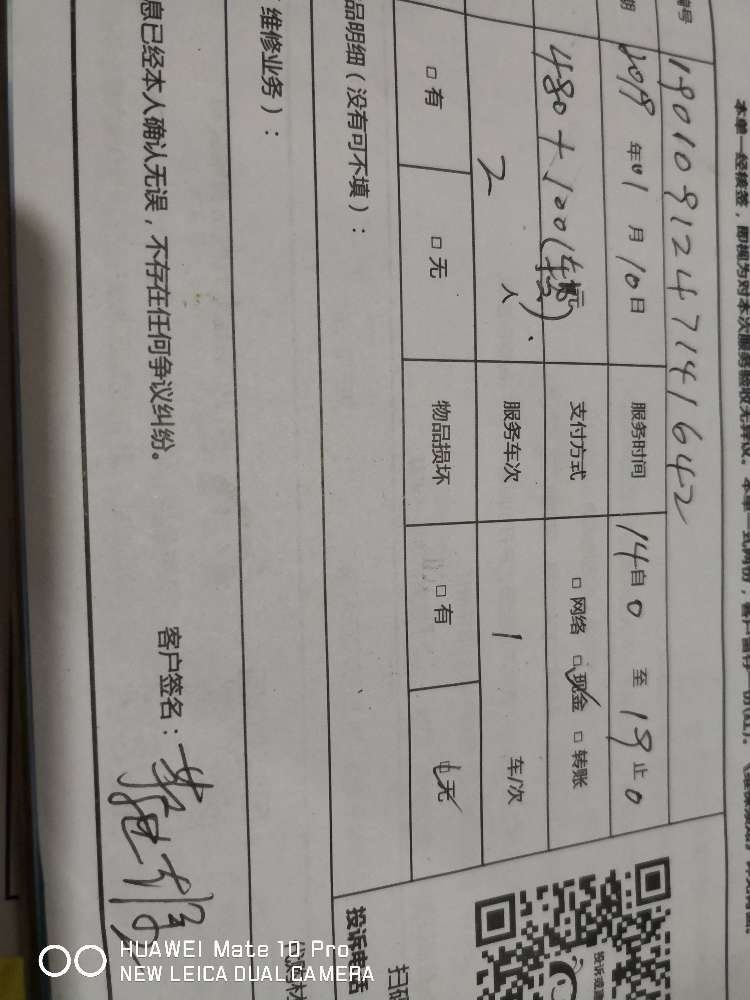 本单一经接签，即视为对本次服务验收无异议。本单一式两份，客户留存一份
编号 190109124714164 2
期 2019 年 01 月 10 日 服务时间 14 自 0 至 19 止 0
480+100( 支付方式 □ 网络 □ 现金 □ 转账
2 人 服务车次 1 车/次
□ 有 □ 无 物品损坏 □ 有 □ 无
品明细（没有可不填）：
投诉电话
扫
维修业务）：
息已经本人确认无误，不存在任何争议纠纷。
客户签名：
HUAWEI Mate 10 Pro
NEW LEICA DUAL CAMERA